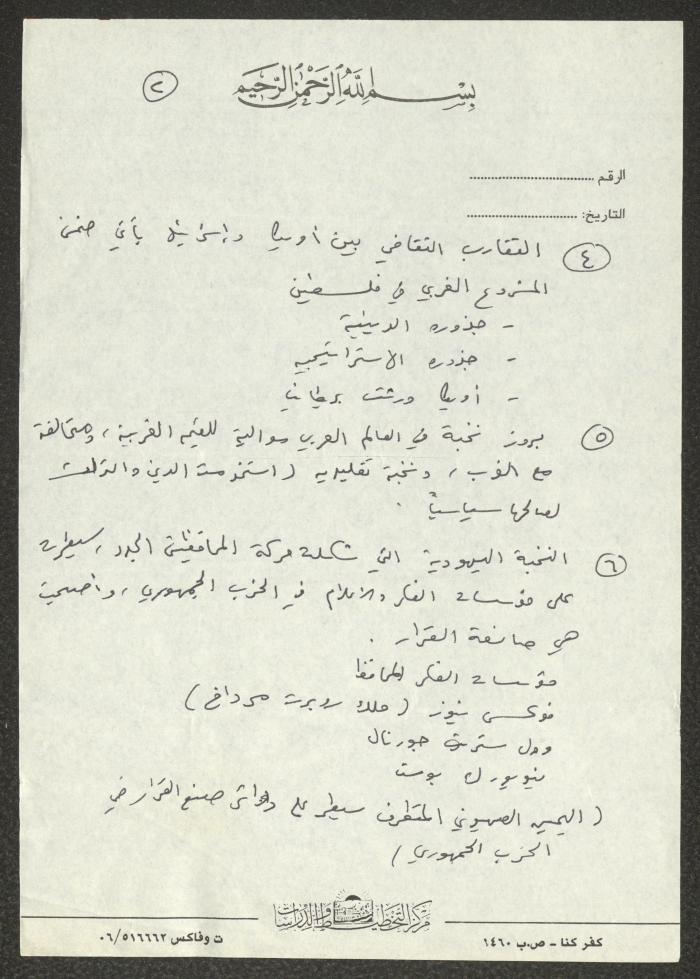 بسم الله الرحمن الرحيم
٢
الرقم ................................
التاريخ: ................................
٤ التقارب الثقافي بين أمريكا وإسرائيل يأتي ضمن
المشروع الغربي في فلسطين
- جذوره الدينية
- جذوره الاستراتيجيه
- أمريكا ورثت بريطانيا
٥ بروز نخبة في العالم العربي موالية للقيم الغربية، ومتحالفة
مع الغرب، ونخبة تقليديه (استخدمت الدين والتراث
لصالحها سياسياً.
٦ النخبة اليهودية التي شكلت حركة المحافظين الجدد، سيطرت
على مؤسسات الفكر والاعلام في الحزب الجمهوري، واصبحت
هي صانعة القرار.
مؤسسات الفكر المحافظ
فوكس نيوز (ملك روبرت مردوخ)
وول ستريت جورنال
نيويورك بوست
(اليمين الصهيوني المتطرف سيطر على دوائر صنع القرار في
الحزب الجمهوري)
مركز التخطيط والدراسات
كفر كنا - ص.ب ١٤٦٠
ت وفاكس ٠٦/٥١٦٦٦٢